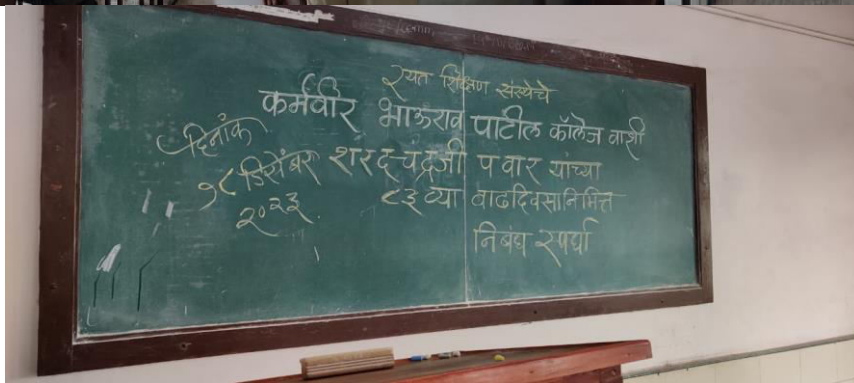 रयत शिक्षण संस्थेचे
कर्मवीर भाऊराव पाटील कॉलेज वाशी
दिनांक
१८ डिसेंबर
२०२३.
शरदचंद्रजी पवार यांच्या
८३ व्या वाढदिवसानिमित्त
निबंध स्पर्धा